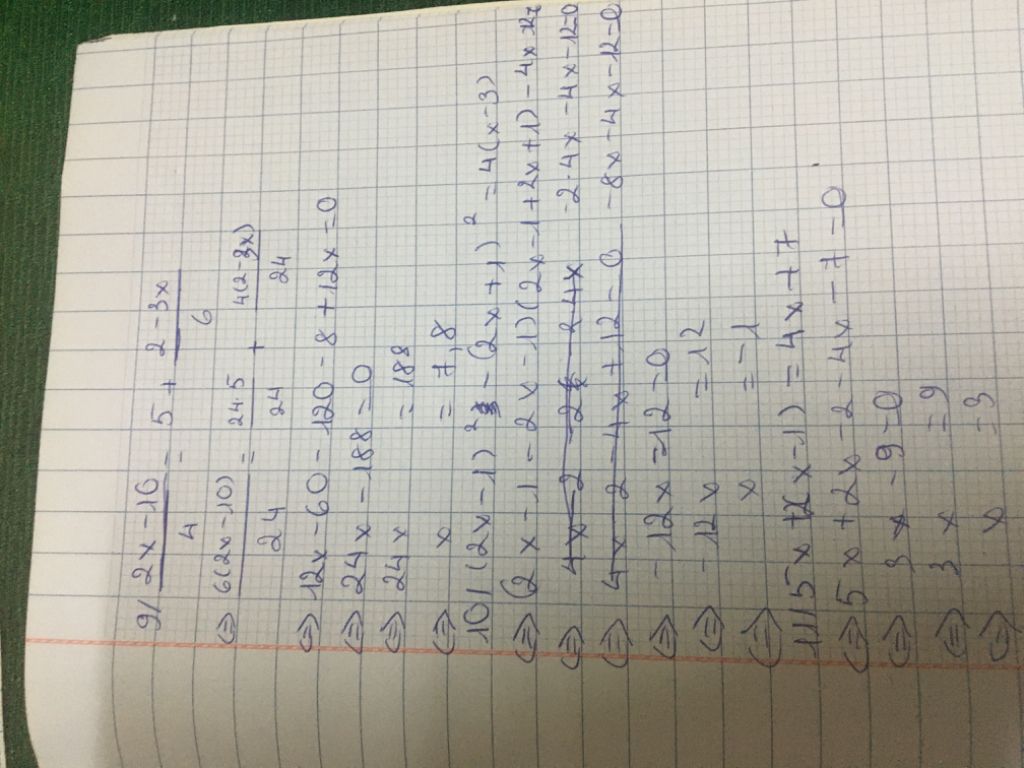 9/ (2x-10)/4 = 5 + (2-3x)/6
⇔ 6(2x-10)/24 = 24.5/24 + 4(2-3x)/24
⇔ 12x-60-120-8+12x=0
⇔ 24x-188=0
⇔ 24x = 188
⇔ x = 7,8
10/ (2x-1)² - (2x+1)² = 4(x-3)
⇔ (2x-1-2x-1)(2x-1+2x+1)-4x+12
⇔ -2.4x-4x-12=0
⇔ -8x-4x-12=0
⇔ -12x-12=0
⇔ -12x =12
⇔ x =-1
11/ 5x+(x-1)=4x+7
⇔ 5x+2x-2-4x-7=0
⇔ 3x-9=0
⇔ 3x =9
⇔ x =3